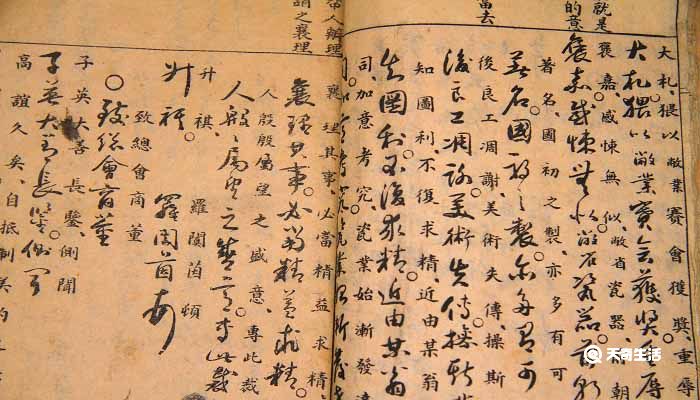 就是
的意
當去
大札。猥以敝業賽會獲獎。重辱
大札猥以敝業賽會獲獎重辱
褒嘉。感悚無似。敝省瓷器。前朝
褒嘉感悚無似敝省瓷器前朝
著名。國初之製。亦多有可
著名國初之製亦多有可
後良工凋謝。美術失傳。操斯
後良工凋謝美術失傳操斯
知圖利。不復求精。近由某翁
知圖利不復求精近由某翁
司。加意考究。瓷業始漸發達
人辦理
謂之襄理
襄理其事。必當精益求精
襄理其事必當精益求精
人殷殷屬望之盛意。專此裁
人殷殷屬望之盛意專此裁
升祺。羅閬茵頓
升祺羅閬茵頓
致總會商董
致總會商董
子英大善長鑒側聞
子英大善長鑒側聞
高誼久矣。自抵制美約
天奇生活